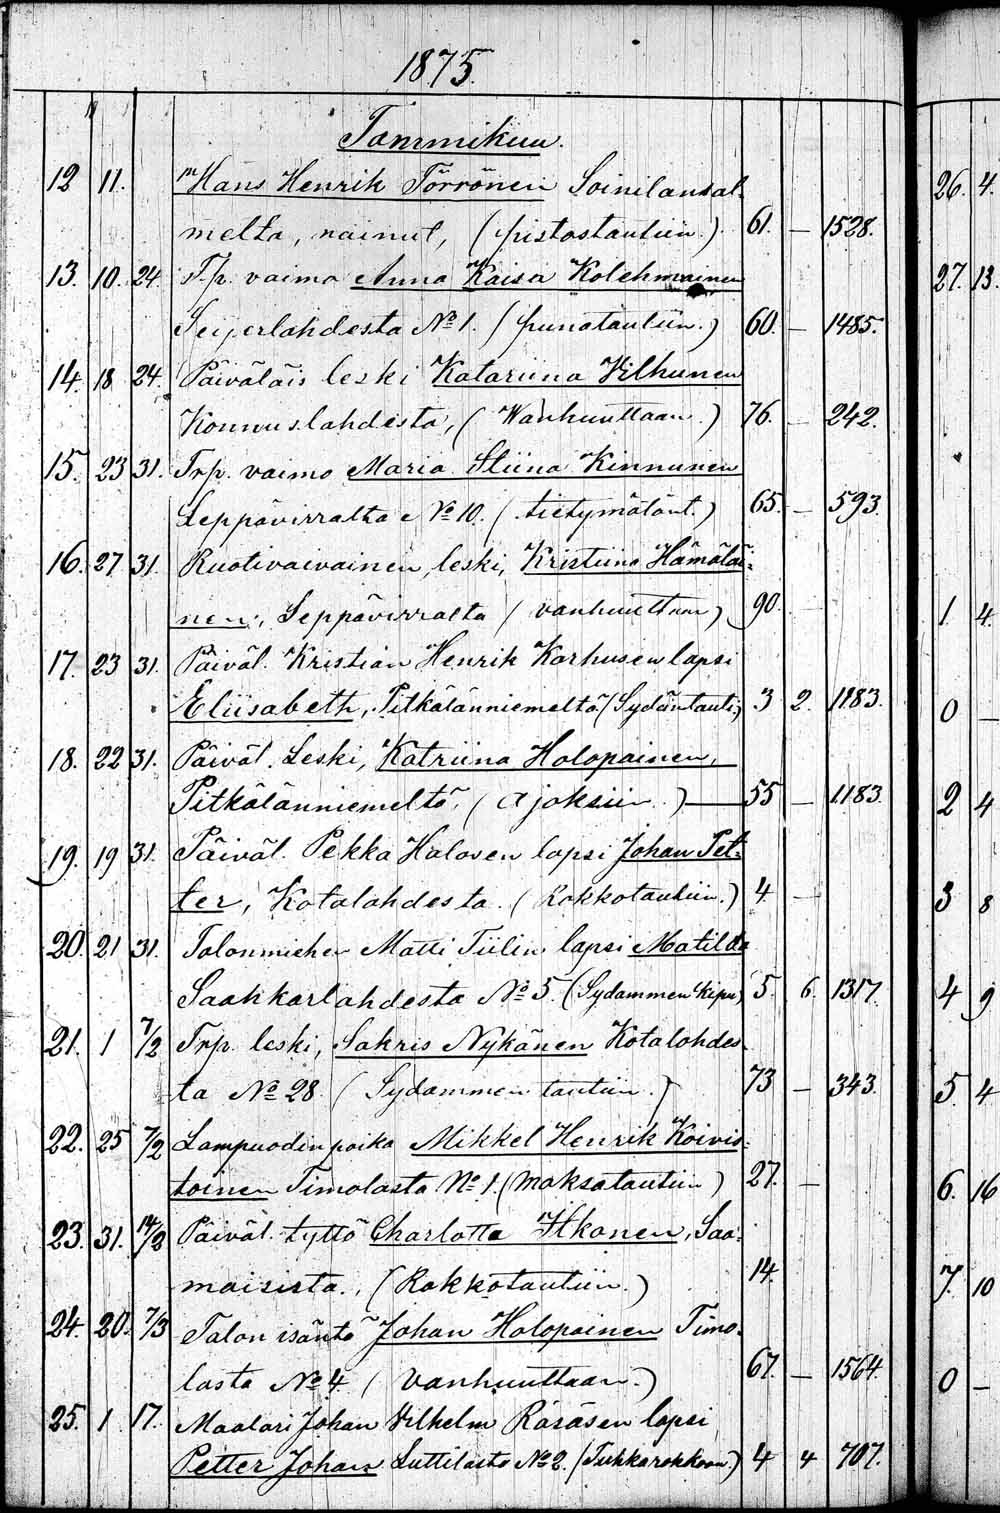 1875.
Tammikuu.
12 11. Hans Henrik Törrönen Soinilansal-
melta, nainut, (pistostautiin.) 61. — 1528.
13. 10. 24. T.p. vaimo Anna Kaisa Kolehmainen
Seijerlahdesta No 1. (punatautiin.) 60. — 1485.
14. 18 24. Päiväläis leski Katariina Vilhunen
Konnuslahdesta, (Wanhuuttaan.) 76. — 242.
15. 23 31. Trp. vaimo Maria Stiina Kinnunen
Leppävirralta No 10. (tietymätönt.) 65. — 593.
16. 27 31. Ruotivaivainen, leski, Kristiina Hämäläi-
nen, Leppävirralta (vanhuuttaan) 90.
17. 23 31. Päiväl. Kristian Henrik Karhusen lapsi
Eliisabeth, Pitkälänniemeltä (Sydäntauti) 3 2. 1183.
18. 22 31. Päiväl. Leski, Katriina Holopainen,
Pitkälänniemeltä, (Ajoksiin.) — 55 — 1183.
19. 19 31. Päiväl. Pekka Halosen lapsi Johan Pet-
ter, Kotalahdesta. (Rokkotautiin.) 4. —
20. 21 31. Talonmiehen Matti Tiilin lapsi Matilda
Saahkarlahdesta No 5. (Sydammen kipu) 5. 6. 1317.
21. 1 7/2 Trp. leski, Sakris Nykänen Kotalahdes-
ta No 28 (Sydammen tautiin.) 73 — 343.
22. 25 7/2 Lampuodin poika Mikkel Henrik Koivis-
toinen Timolasta No 1. (Maksatautiin) 27. —
23. 31. 14/2 Päiväl. tyttö Charlotta Itkonen, Saa-
maisista., (Rokkotautiin.) 14.
24. 20. 7/3 Talon isäntä Johan Holopainen Timo-
lasta No 4. (Vanhuuttaan.) 67. — 1564.
25. 1 17. Maalari Johan Vilhelm Räsäsen lapsi
Petter Johan Luttilasta No 2. (Tuhkarokkoon.) 4 4 707.
26. 4.
27. 13.
1. 4.
0 —
2 4
3 8
4 9
5. 4
6. 16
7. 10
0 —